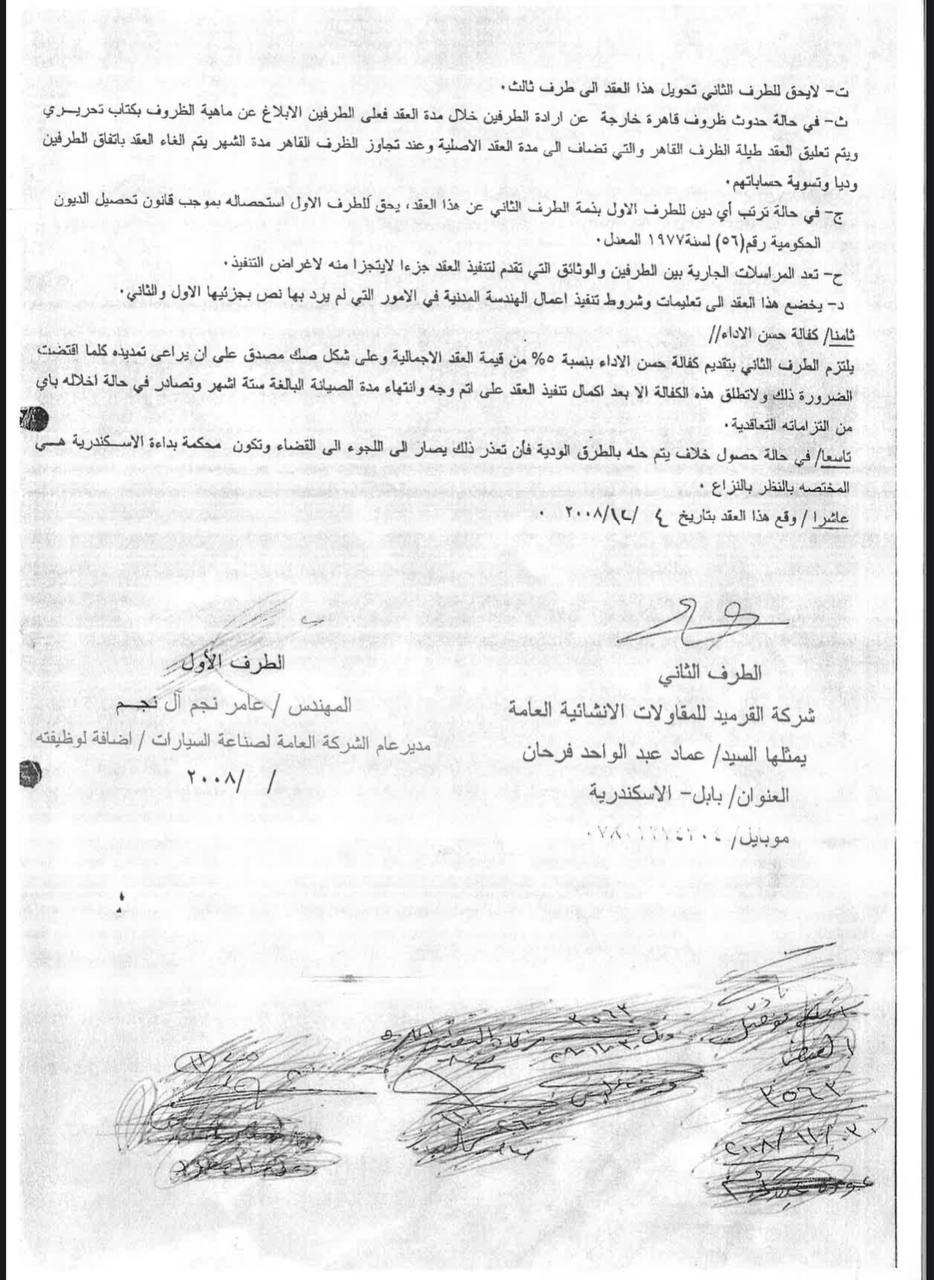 ت- لايحق للطرف الثاني تحويل هذا العقد الى طرف ثالث.
ث- في حالة حدوث ظروف قاهرة خارجة عن ارادة الطرفين خلال مدة العقد فعلى الطرفين الابلاغ عن ماهية الظروف بكتاب تحريـــري
ويتم تعليق العقد طيلة الظرف القاهر والتي تضاف الى مدة العقد الاصلية وعند تجاوز الظرف القاهر مدة الشهر يتم الغاء العقد باتفاق الطرفين
وديا وتسوية حساباتهم.
ج- في حالة ترتب أي دين للطرف الاول بذمة الطرف الثاني عن هذا العقد، يحق للطرف الاول استحصاله بموجب قانون تحصيل الديون
الحكومية رقم(٥٦) لسنة١٩٧٧ المعدل.
ح- تعد المراسلات الجارية بين الطرفين والوثائق التي تقدم لتنفيذ العقد جزءا لايتجزا منه لاغراض التنفيذ.
د- يخضع هذا العقد الى تعليمات وشروط تنفيذ اعمال الهندسة المدنية في الامور التي لم يرد بها نص بجزئيها الاول والثاني.
ثامنا/ كفالة حسن الاداء//
يلتزم الطرف الثاني بتقديم كفالة حسن الاداء بنسبة ٥% من قيمة العقد الاجمالية وعلى شكل صك مصدق على ان يراعى تمديده كلما اقتضت
الضرورة ذلك ولاتطلق هذه الكفالة الا بعد اكمال تنفيذ العقد على اتم وجه وانتهاء مدة الصيانة البالغة ستة اشهر وتصادر في حالة اخلاله باي
من التزاماته التعاقدية.
تاسعا/ في حالة حصول خلاف يتم حله بالطرق الودية فأن تعذر ذلك يصار الى اللجوء الى القضاء وتكون محكمة بداءة الاسكندرية هـــي
المختصه بالنظر بالنزاع.
عاشرا / وقع هذا العقد بتاريخ ٤ /١٢/ ٢٠٠٨.
الطرف الثاني
شركة القرميد للمقاولات الانشائية العامة
يمثلها السيد/ عماد عبد الواحد فرحان
العنوان/ بابل- الاسكندرية
موبايل/
الطرف الأول
المهندس / عامر نجم آل نجــم
مديرعام الشركة العامة لصناعة السيارات / اضافة لوظيفته
/ /٢٠٠٨
٣٥٦٣
٣٥٦٣